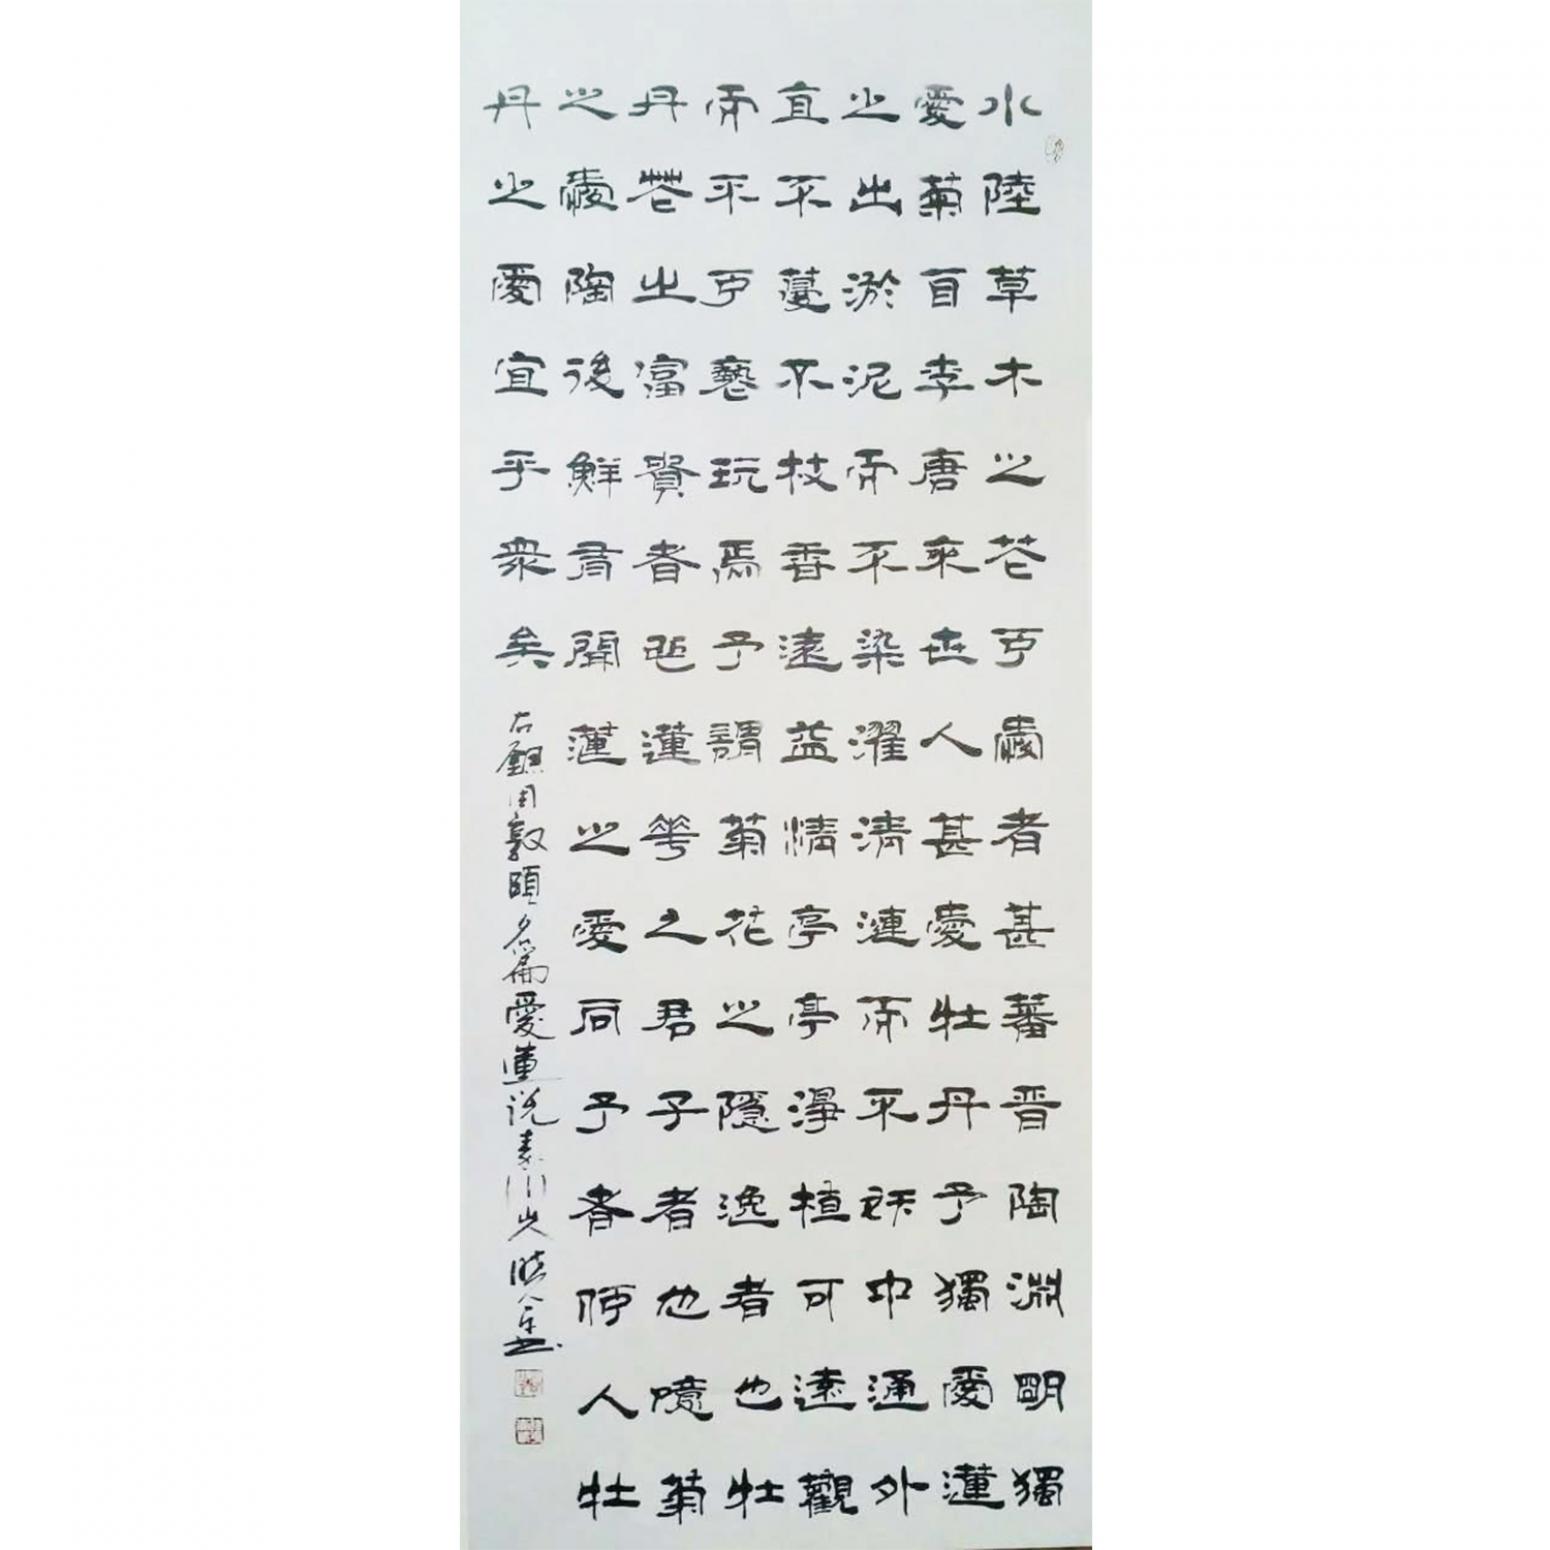 水陸草木之花可愛者甚蕃晉陶淵明獨
愛菊自李唐來世人甚愛牡丹予獨愛蓮
之出淤泥而不染濯清漣而不妖中通外
直不蔓不枝香遠益清亭亭淨植可遠觀
而不可褻玩焉予謂菊花之隱逸者也牡
丹花之富貴者也蓮花之君子者也噫菊
之愛陶後鮮有聞蓮之愛同予者何人牡
丹之愛宜乎衆矣
右録周敦頤名篇愛蓮说